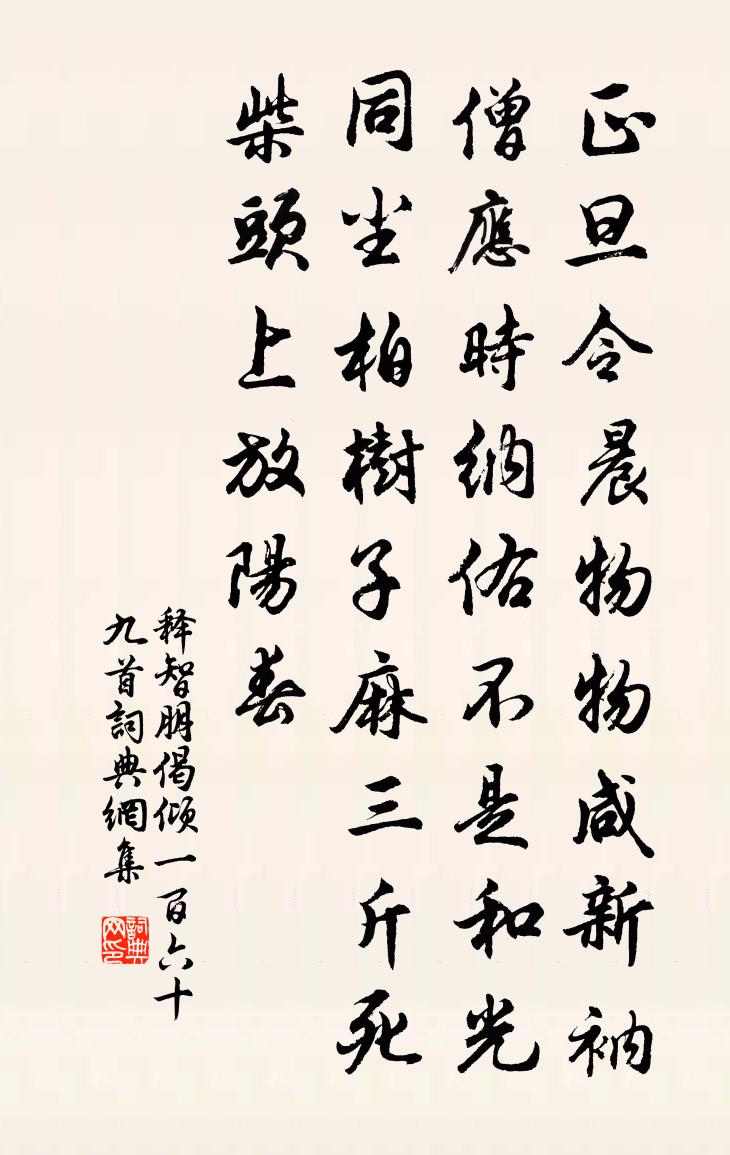 正旦令晨物物咸新衲
僧應時納佑不是和光
同尘柏樹子麻三斤死
柴頭上放陽春
释智朋偈傾一百六十
九首詞典網集
詞典网印